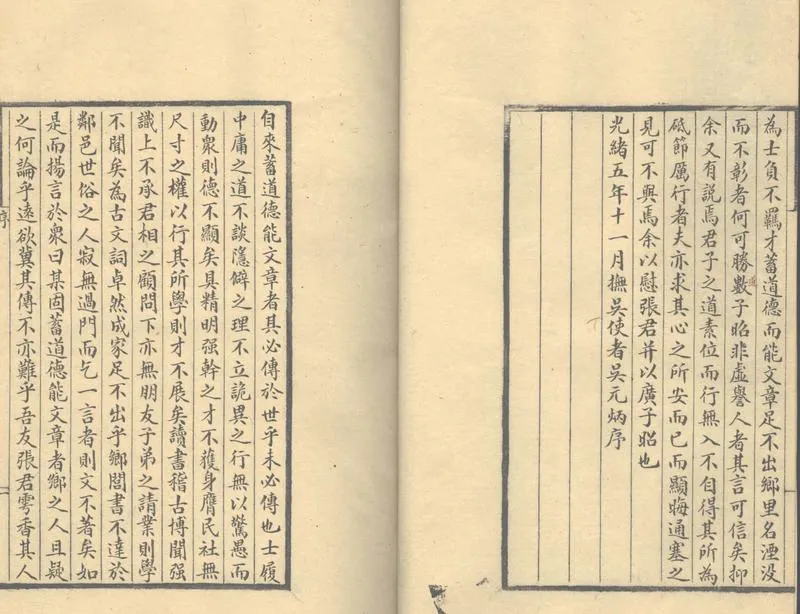 為士負不羈才蓄道德而能文章足不出鄉里名湮沒
而不彰者何可勝數子昭非虛譽人者其言可信矣抑
余又有說焉君子之道素位而行無入不自得其所為
砥節厲行者夫亦求其心之所安而已而顯晦通塞之
見可不興焉余以慰張君并以廣子昭也
光緒五年十一月撫吳使者吳元炳序
自來蓄道德能文章者其必傳於世乎未必傳也士履
中庸之道不談隱僻之理不立詭異之行無以驚愚而
動眾則德不顯矣具精明强幹之才不獲身膺民社無
尺寸之權以行其所學則才不展矣讀書稽古博聞强
識上不承君相之顧問下亦無朋友子弟之請業則學
不聞矣為古文詞卓然成家足不出乎鄉閭書不達於
鄰邑世俗之人寂無過門而乞一言者則文不著矣如
是而揚言於眾曰某固蓄道德能文章者鄉之人且疑
之何論乎遠欲冀其傳不亦難乎吾友張君雩香其人
序